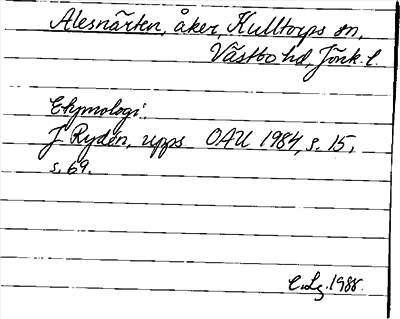 Alesnärten, åker, Kulltorps sn,
Västbo hd, Jönk. l.
Etymologi:
J Rydén, upps OAU 1984, s. 15,
s. 69.
C.Lg. 1988.